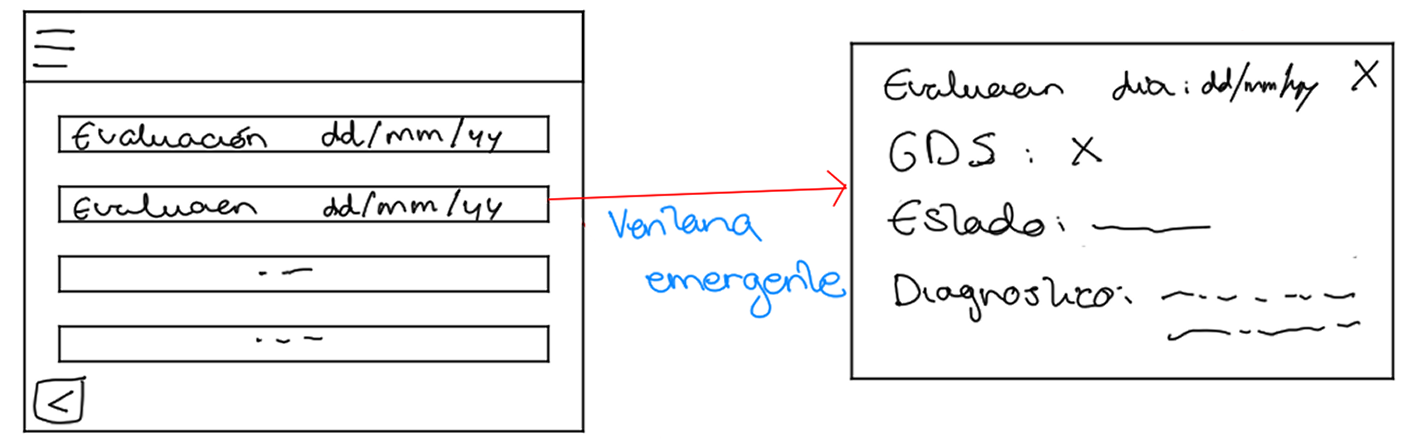 Evaluación dd/mm/yy
Evaluación dd/mm/yy
<
Ventana
emergente
Evaluación dia: dd/mm/yy X
GDS: X
Estado:
Diagnostico: